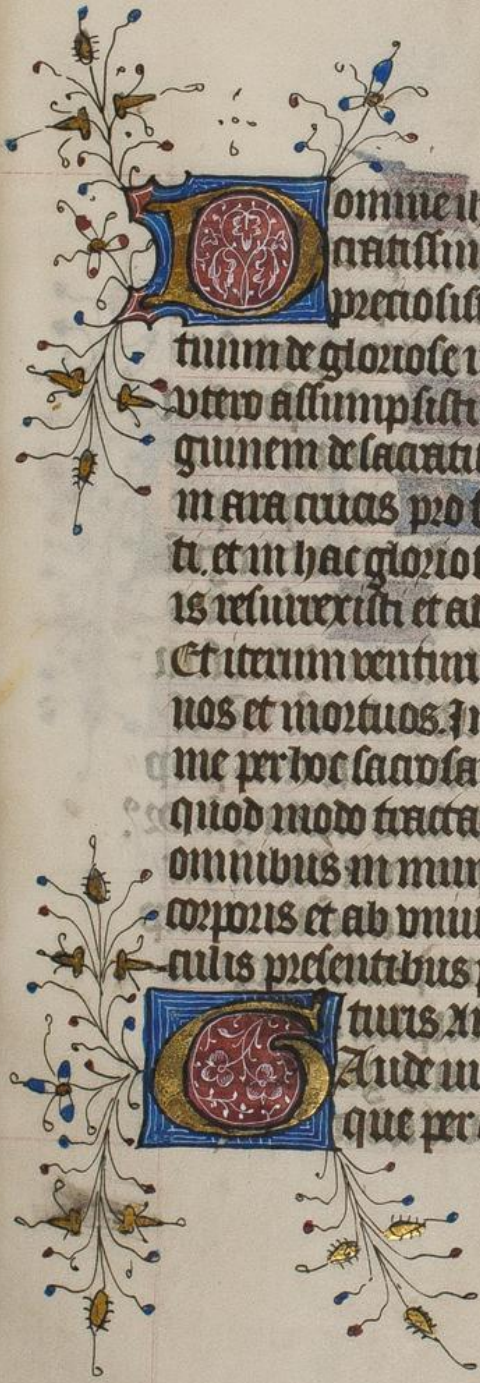 Domine ih
cratissim
preciosis
tuum de gloriose
vtero assumpsisti
guinem de sacratis
in ara crucis pro
ti. et in hac glorios
is resurrexisti et ad
Et iterum ventur
uos et mortuos.
me per hoc sacrosa
quod modo tracta
omnibus in mun
corporis et ab vniu
culis presentibus
turis A
GAude ui
que per